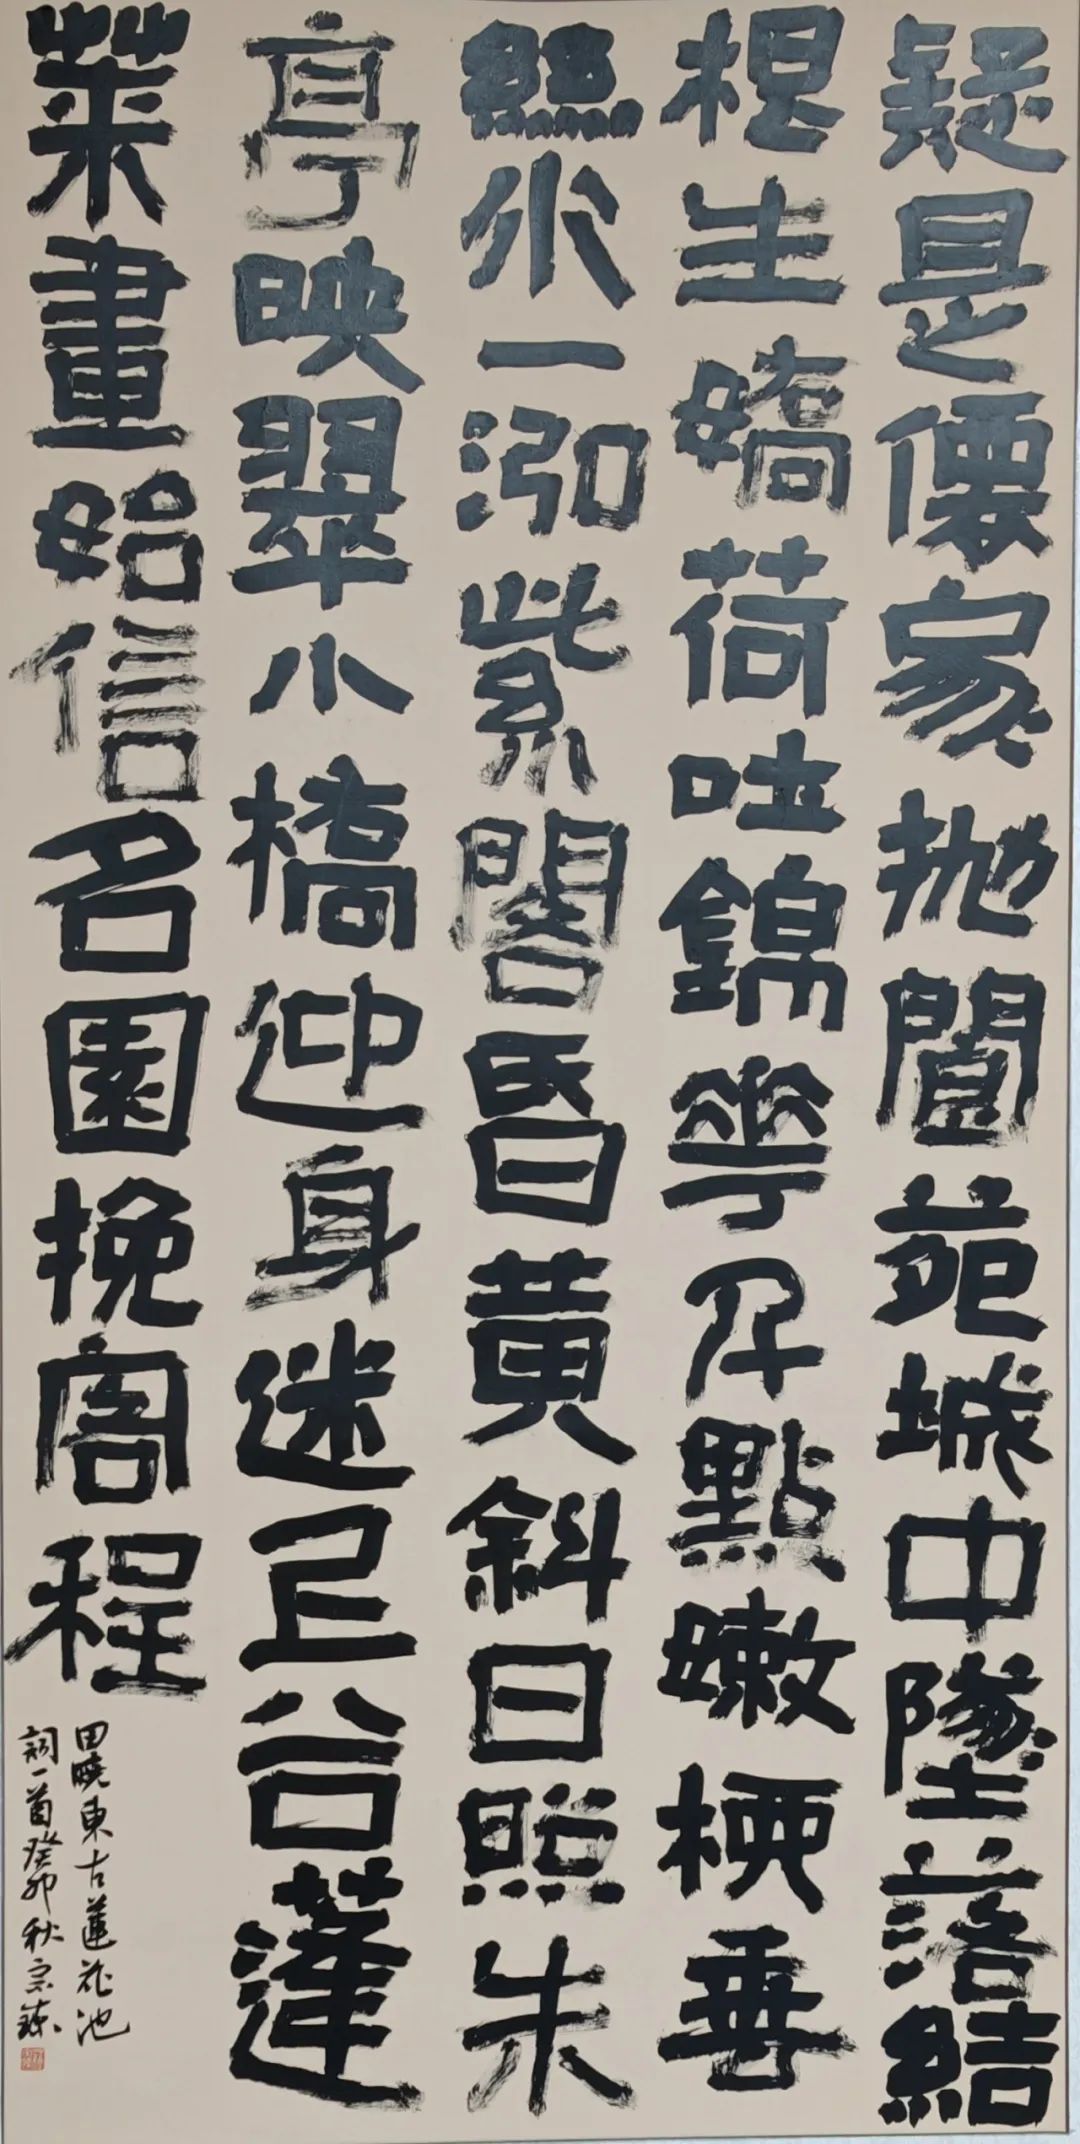 疑是儂家抛閬苑城中墜落結
根生嬌荷吐錦華孕點嫩梗垂
絲水一泓紫閣昏黄斜日照朱
亭映翠小橋迎身迷谷蓬
萊畫始信名園挽客程
田曉東古蓮花池
詞一首癸卯秋宗